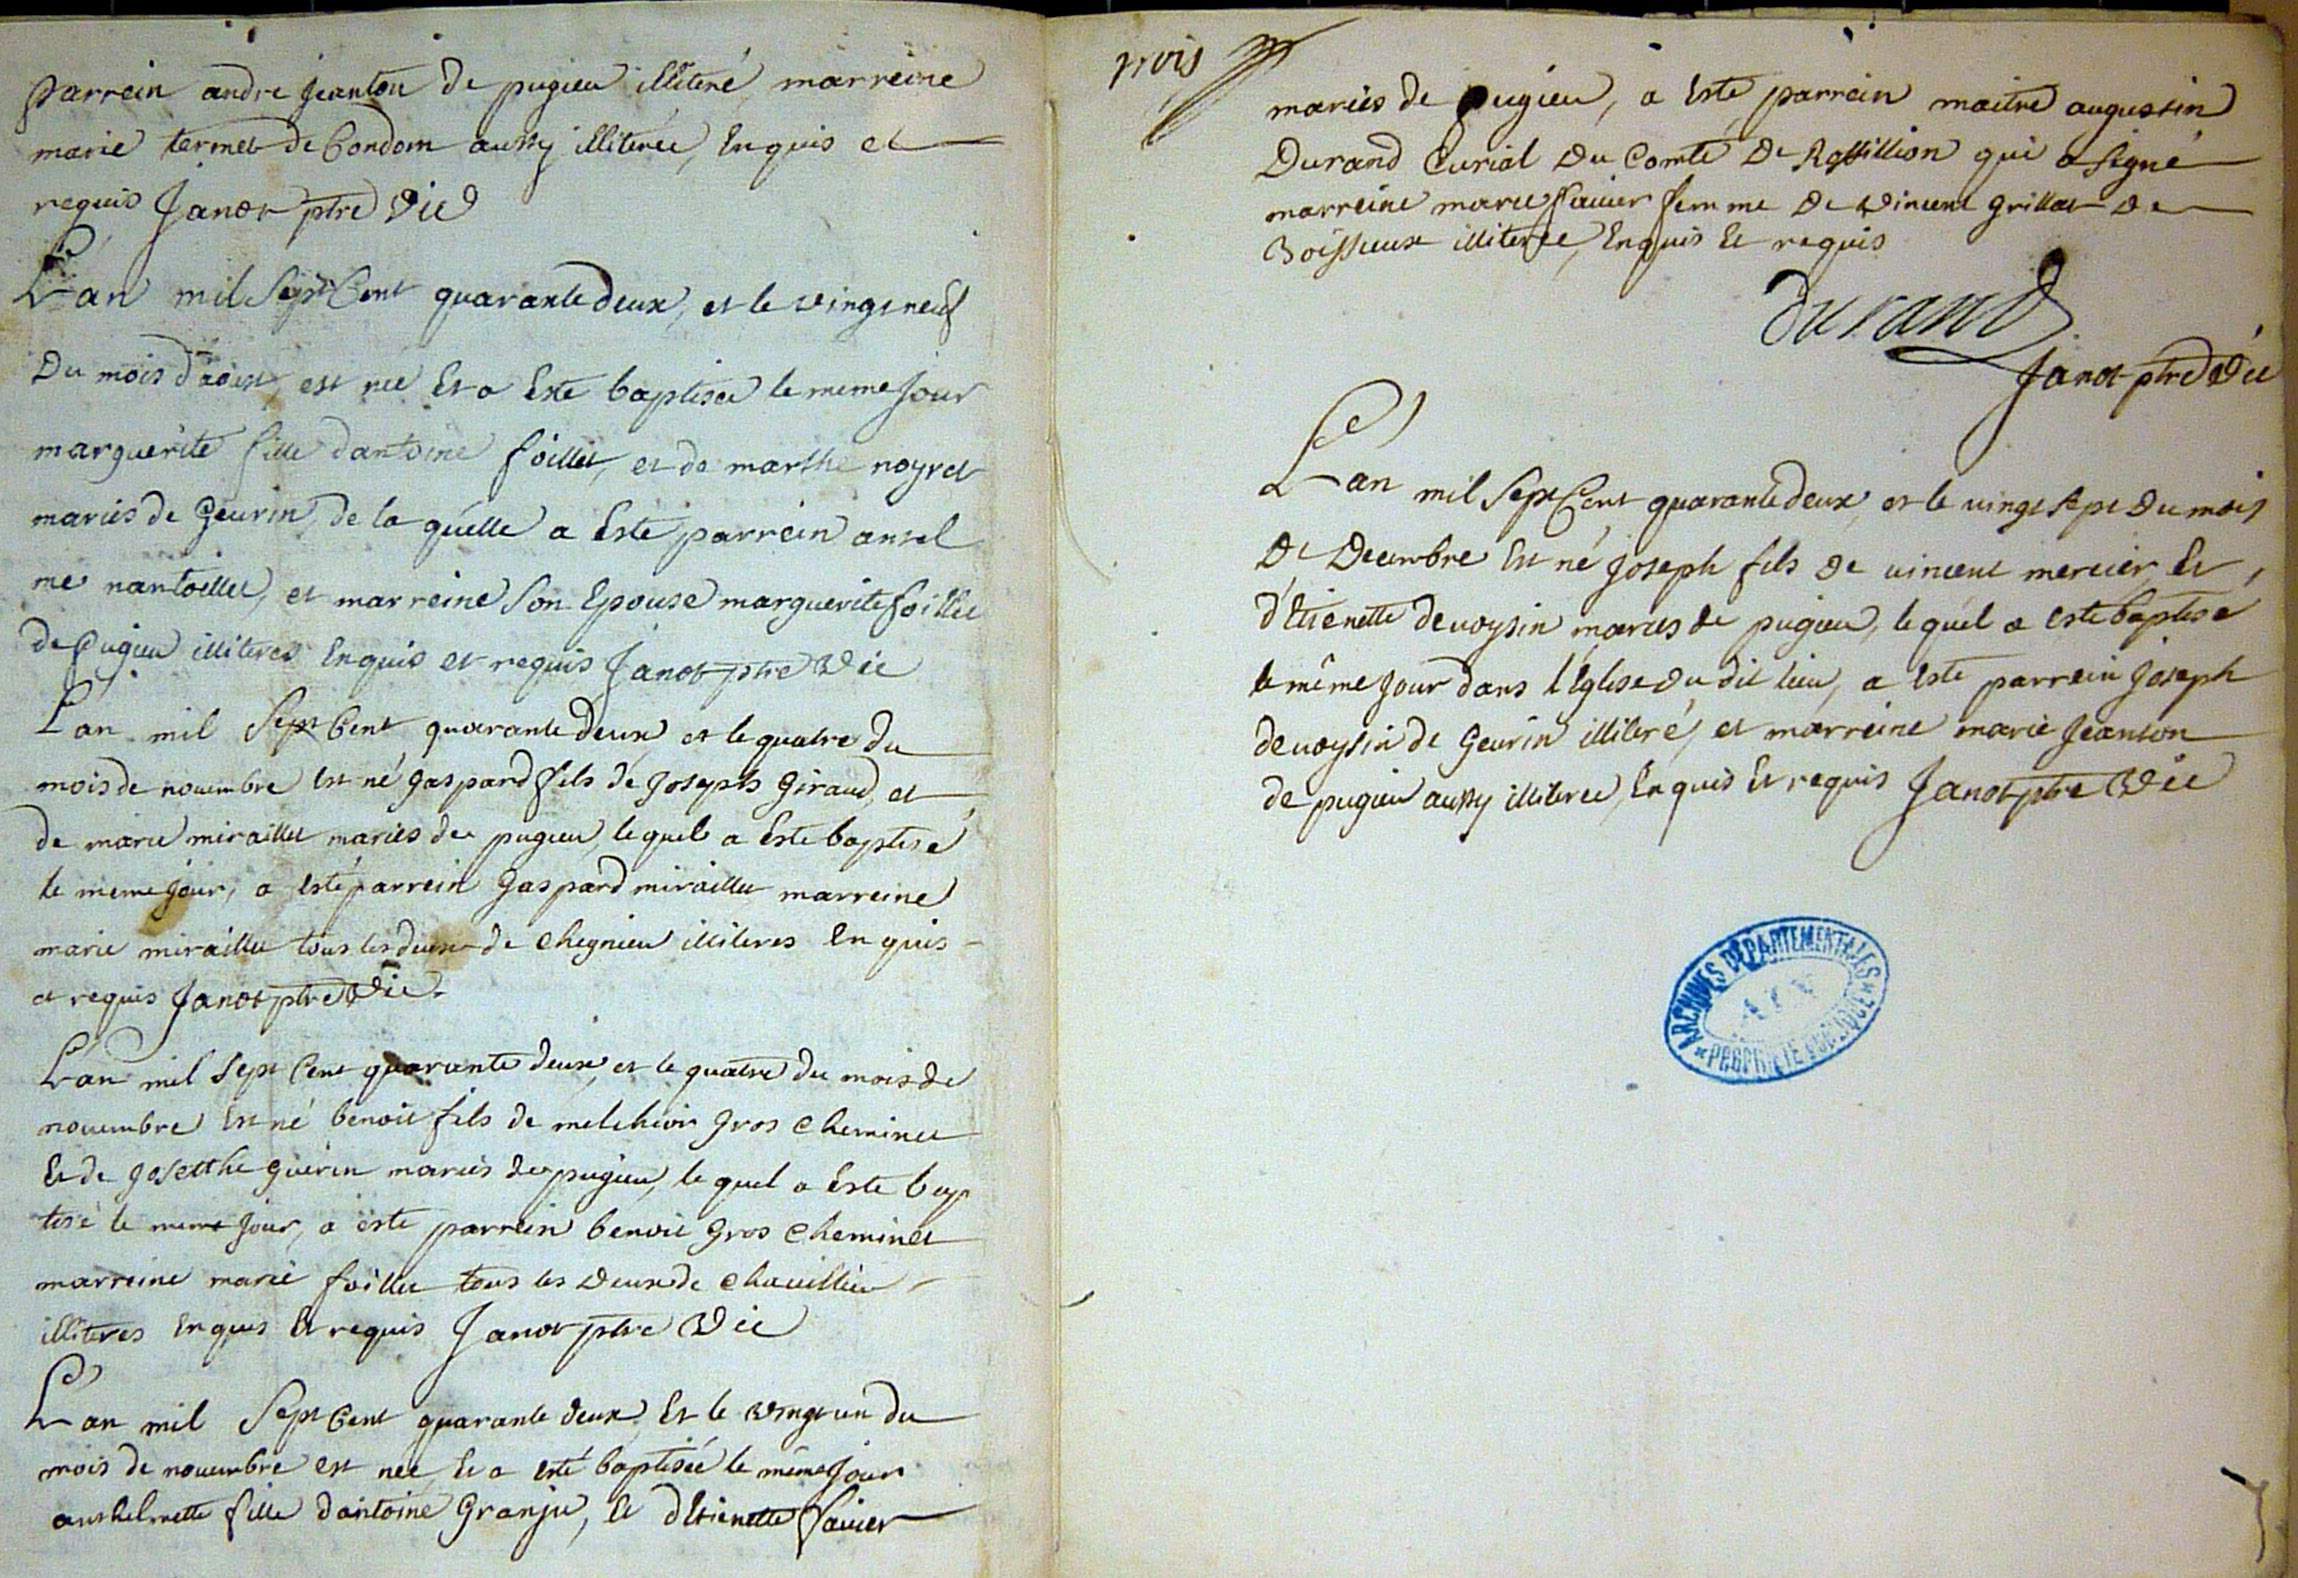 parrein andre jeanton de pugieu illiteré, marreine
marie termet de Condom aussy illiterée, Enquis et
requis Janot ptre vic
L'an mil Sept Cent quarante deux, et le vingt neuf
Du mois d'aoust, est née Et a Esté baptisée le meme jour
marguerite fille dantoine foillet, et de marthe noyret
mariés de Geurin, de la quelle a Esté parrein ansel
me nantoillet, et marreine Son Epouse marguerite foillet
de Pugieu illiteres Enquis et requis Janot ptre Vic
L'an mil Sept Cent quarante deux et le quatre du
mois de novembre Est né gaspard fils de Joseph Giraud, et
de marie miraillet mariés de pugieu, le quel a Esté baptisé
le meme jour, a Esté parrein Gaspard miraillet marreine
marie miraillet tous les deux de Chegnieu illiteres Enquis
et requis Janot ptre Vic.
L'an mil Sept Cent quarante deux, et le quatre du mois de
novembre Est né benoit fils de melchior Gros Cheminet
Et de Josetthe guerin mariés de pugieu, le quel a Esté bap
tisé le meme jour, a esté parrein benoit Gros Cheminet
marreine marie foillet tous les deux de Chavillieu
illiteres Enquis Et requis Janot ptre Vic
L'an mil Sept Cent quarante deux, Et le vingt un du
mois de novembre est née, Et a esté baptisée le même jour
anthelmette fille dantoine Granju, Et dEtienette favier
trois
mariés de pugieu, a Esté parrein maitre augustin
Durand Curial du Comté de Rossillion qui a Signé
marreine marie favier femme de vincent grillat de
Boissieux illiterée, Enquis Et requis
durand
Janot ptre Vic
L'an mil Sept Cent quarante deux, et le vingt sept du mois
de Decembre Est né Joseph fils de vincent mercier, Et
d'Etienette devoysin mariés de pugieu, le quel a esté baptisé
le même jour dans l'Eglise du dit lieu, a Esté parrein Joseph
devoysin de Geurin illiteré, et marreine marie Jeanton
de pugieu aussy illiterée, Enquis Et requis Janot ptre Vic
ARCHIVES DÉPARTEMENTALES
AIN
* PROPRIÉTÉ PUBLIQUE *